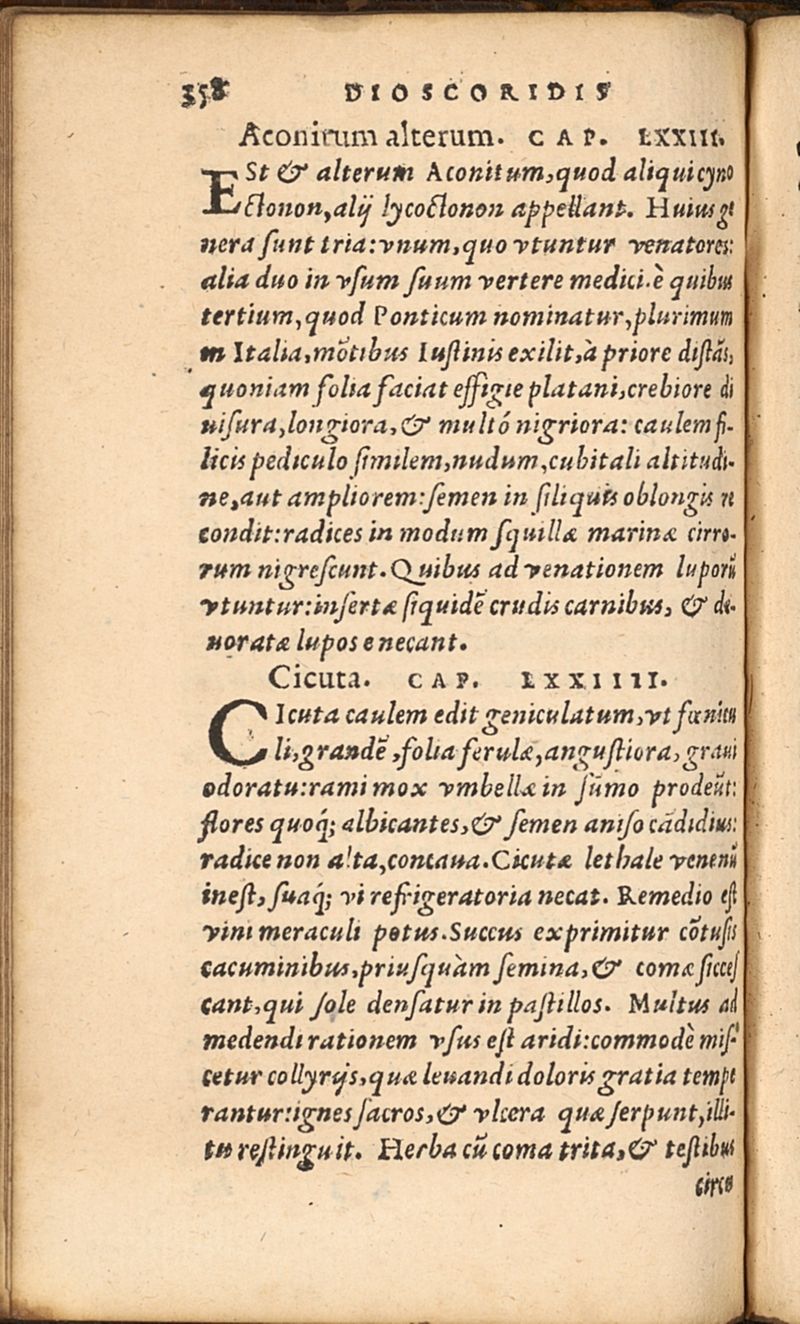 358 DIOSCORIDIS
Aconitum alterum. CAP. LXXIII.
ESt & alterum Aconitum, quod aliqui cyno
ctonon, alij lycoctonon appellant. Huius ge
nera sunt tria: vnum, quo vtuntur venatores:
alia duo in vsum suum vertere medici. è quibus
tertium, quod Ponticum nominatur, plurimum
in Italia, mõtibus Iustinis exilit, à priore distãs,
quoniam folia faciat effigie platani, crebiore di
uisura, longiora, & multó nigriora: caulem fi-
licis pediculo similem, nudum, cubitali altitudi-
ne, aut ampliorem: semen in siliquis oblongis re
condit: radices in modum squillæ marinæ cirro-
rum nigrescunt. Quibus ad venationem luporũ
vtuntur: insertæ siquidẽ crudis carnibus, & de-
uoratæ lupos enecant.
Cicuta. CAP. LXXIIII.
CIcuta caulem edit geniculatum, vt fœnicu
li, grandẽ, folia ferulæ, angustiora, graui
odoratu: rami mox vmbellæ in sũmo prodeũt:
flores quoq́; albicantes, & semen aniso cãdidius:
radice non alta, concaua. Cicutæ lethale venenũ
inest, suaq́; vi refrigeratoria necat. Remedio est
vini meraculi potus. Succus exprimitur cõtusis
cacuminibus, priusquàm semina, & comæ sicces
cant, qui sole densatur in pastillos. Multus ad
medendi rationem vsus est aridi: commodè mis-
cetur collyrijs, quæ leuandi doloris gratia tempe
rantur: ignes sacros, & vlcera quæ serpunt, illi-
tu restinguit. Herba cũ coma trita, & testibus
circũ